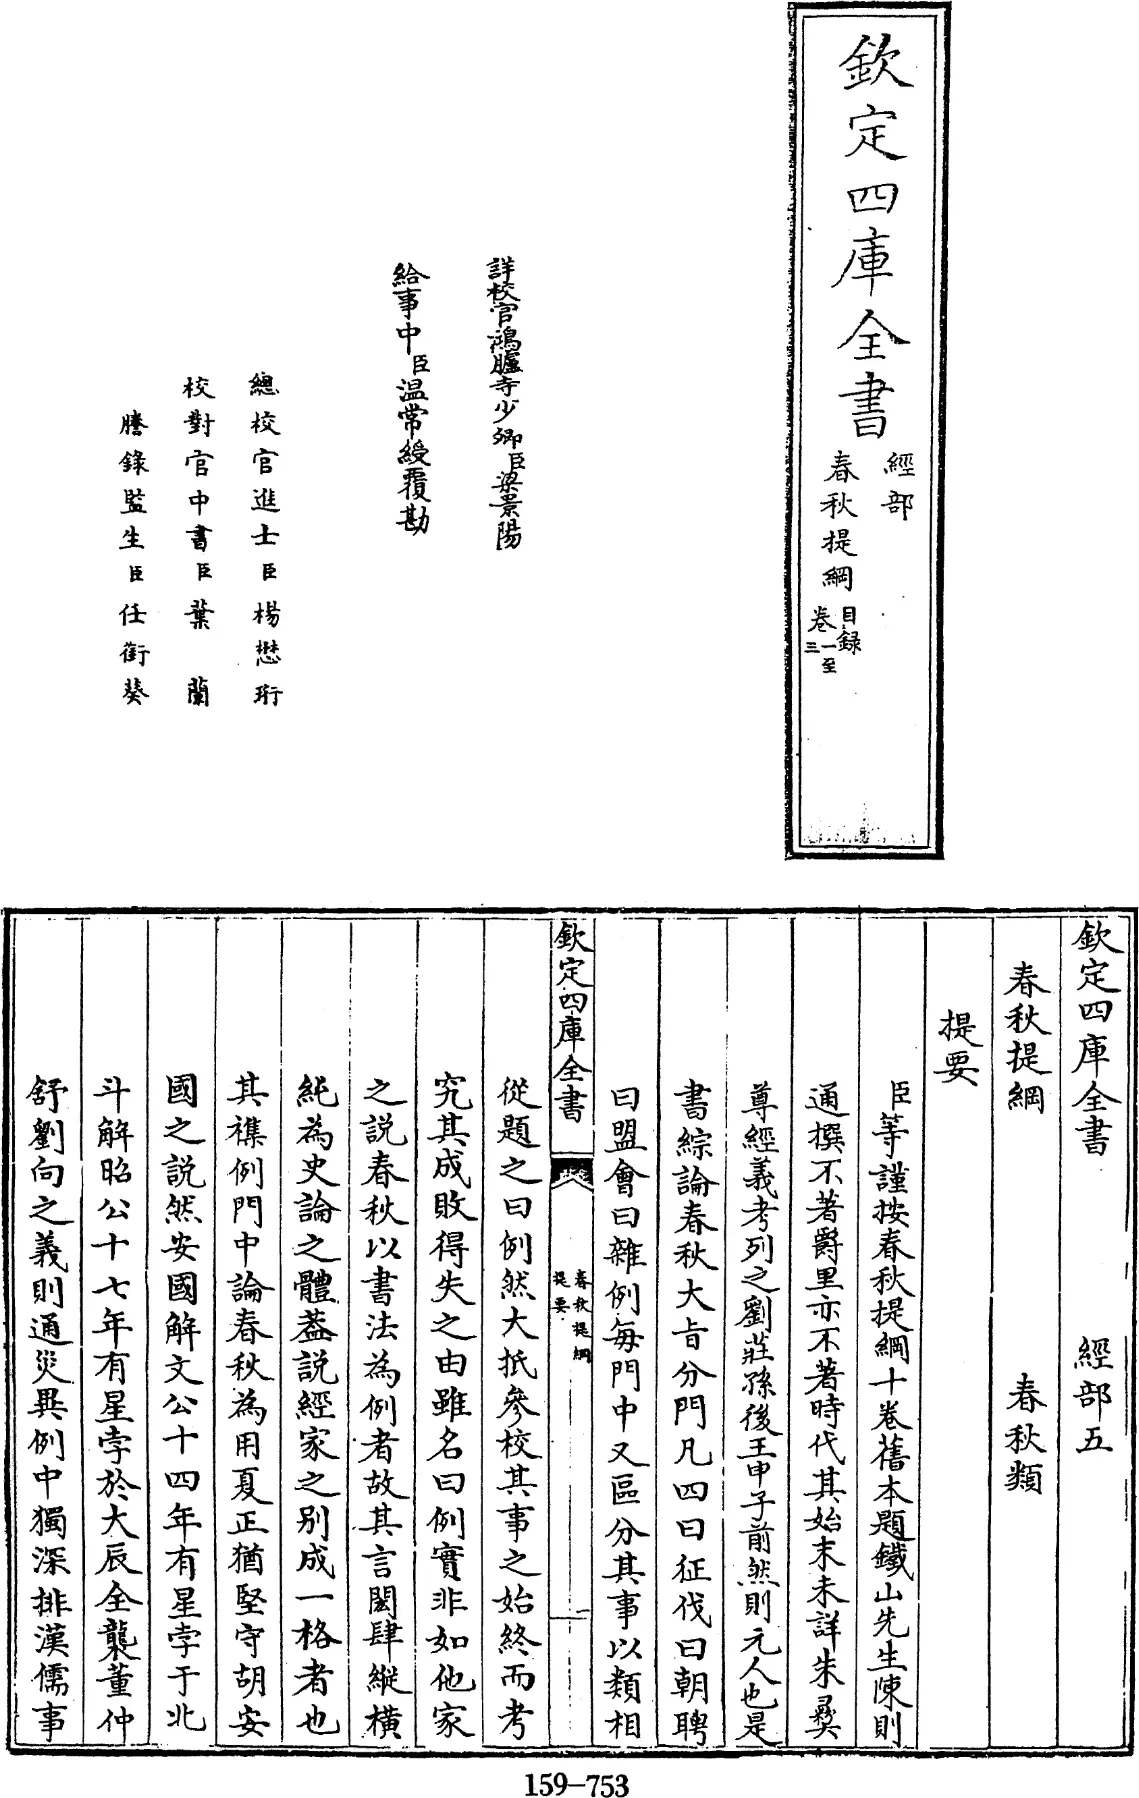 欽定四庫全書
經部
春秋提綱
目録
卷一至
三
詳校官鴻臚寺少卿臣梁景陽
給事中臣温常綬覆勘
總校官進士臣楊懋珩
校對官中書臣葉蘭
謄錄監生臣任銜蔡
欽定四庫全書 經部五
春秋提綱 春秋類
提要
臣等謹按春秋提綱十卷舊本題鐵山先生陳則
通撰不著爵里亦不著時代其始末未詳朱彞
尊經義考列之劉莊孫後王申子前然則元人也是
書綜論春秋大旨分門凡四曰征伐曰朝聘
曰盟會曰雜例每門中又區分其事以類相
欽定四庫全書
春秋提綱
提要
一
從題之曰例然大抵參校其事之始終而考
究其成敗得失之由雖名曰例實非如他家
之説春秋以書法為例者故其言閎肆縱橫
純為史論之體葢説經家之别成一格者也
其襍例門中論春秋為用夏正猶堅守胡安
國之説然安國解文公十四年有星孛于北
斗解昭公十七年有星孛於大辰全襲董仲
舒劉向之義則通災異例中獨深排漢儒事
159–753